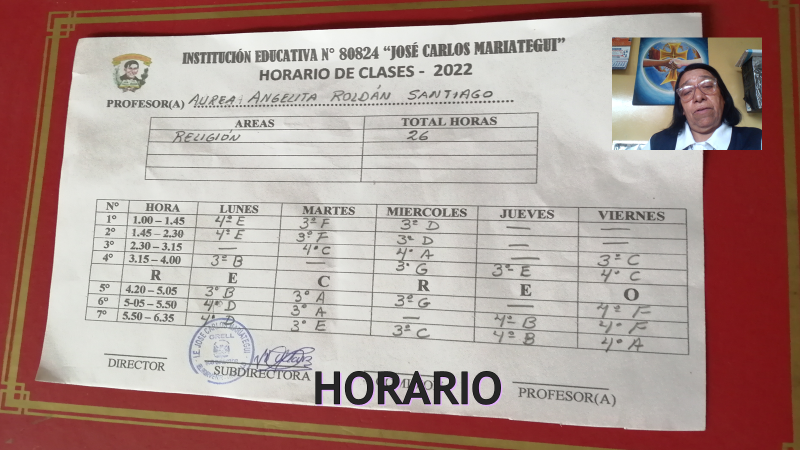 INSTITUCIÓN EDUCATIVA N° 80824 "JOSÉ CARLOS MARIATEGUI"
HORARIO DE CLASES - 2022
PROFESOR(A) AUREA ANGELITA ROLDÁN SANTIAGO
AREAS TOTAL HORAS
RELIGIÓN 26
N° HORA LUNES MARTES MIERCOLES JUEVES VIERNES
1° 1.00 – 1.45 4º E 3º F 3º D — —
2° 1.45 – 2.30 4º E 3º F 3º D — —
3° 2.30 – 3.15 — 4º C 4º A — 3º C
4° 3.15 – 4.00 3º B — 3º G 3º E 4º C
R E C R E O
5° 4.20 – 5.05 3º B 3º A 3º G — 4º F
6° 5-05 – 5.50 4º D 3º A — 4º B 4º F
7° 5.50 – 6.35 4º D 3º E 3º C 4º B 4º A
DIRECTOR SUBDIRECTORA PROFESOR(A)
HORARIO